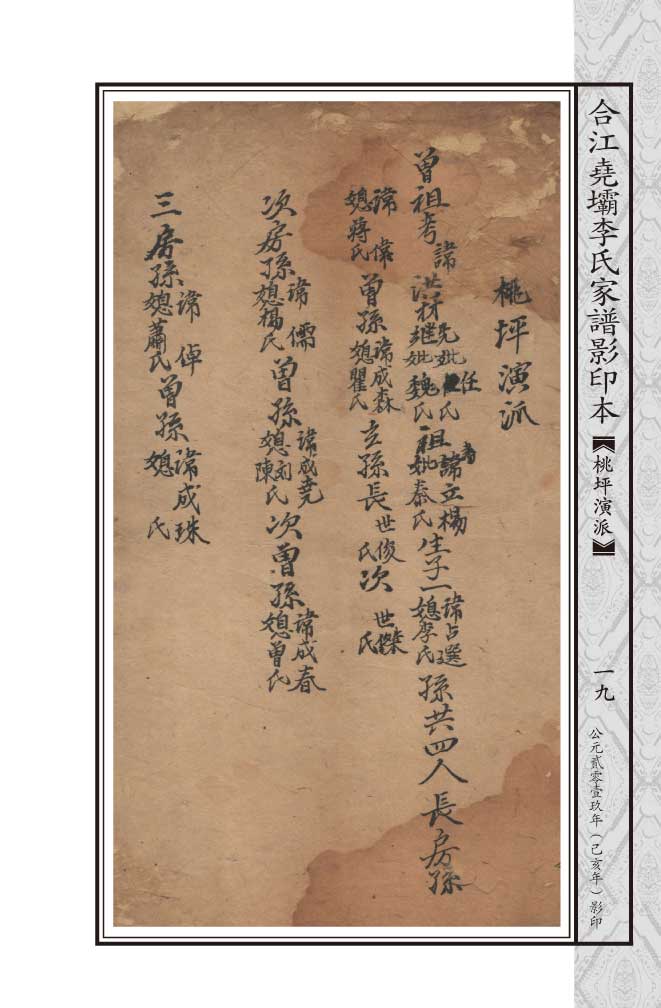 合江堯壩李氏家譜影印本
【桃坪演派】
一九
公元貳零壹玖年(己亥年)影印
桃坪演派
曾祖考諱洪秝先妣任氏继妣魏氏祖考諱立楊妣秦氏生子一諱占選媳李氏孫共四人長房孫
諱偉媳蔣氏曾孫諱成森媳瞿氏玄孫長世俊氏次世傑氏
次房孫諱儒媳楊氏曾孫諱成堯媳刘陳氏次曾孫諱成春媳曾氏
三房孫諱倬媳蕭氏曾孫諱成珠媳氏